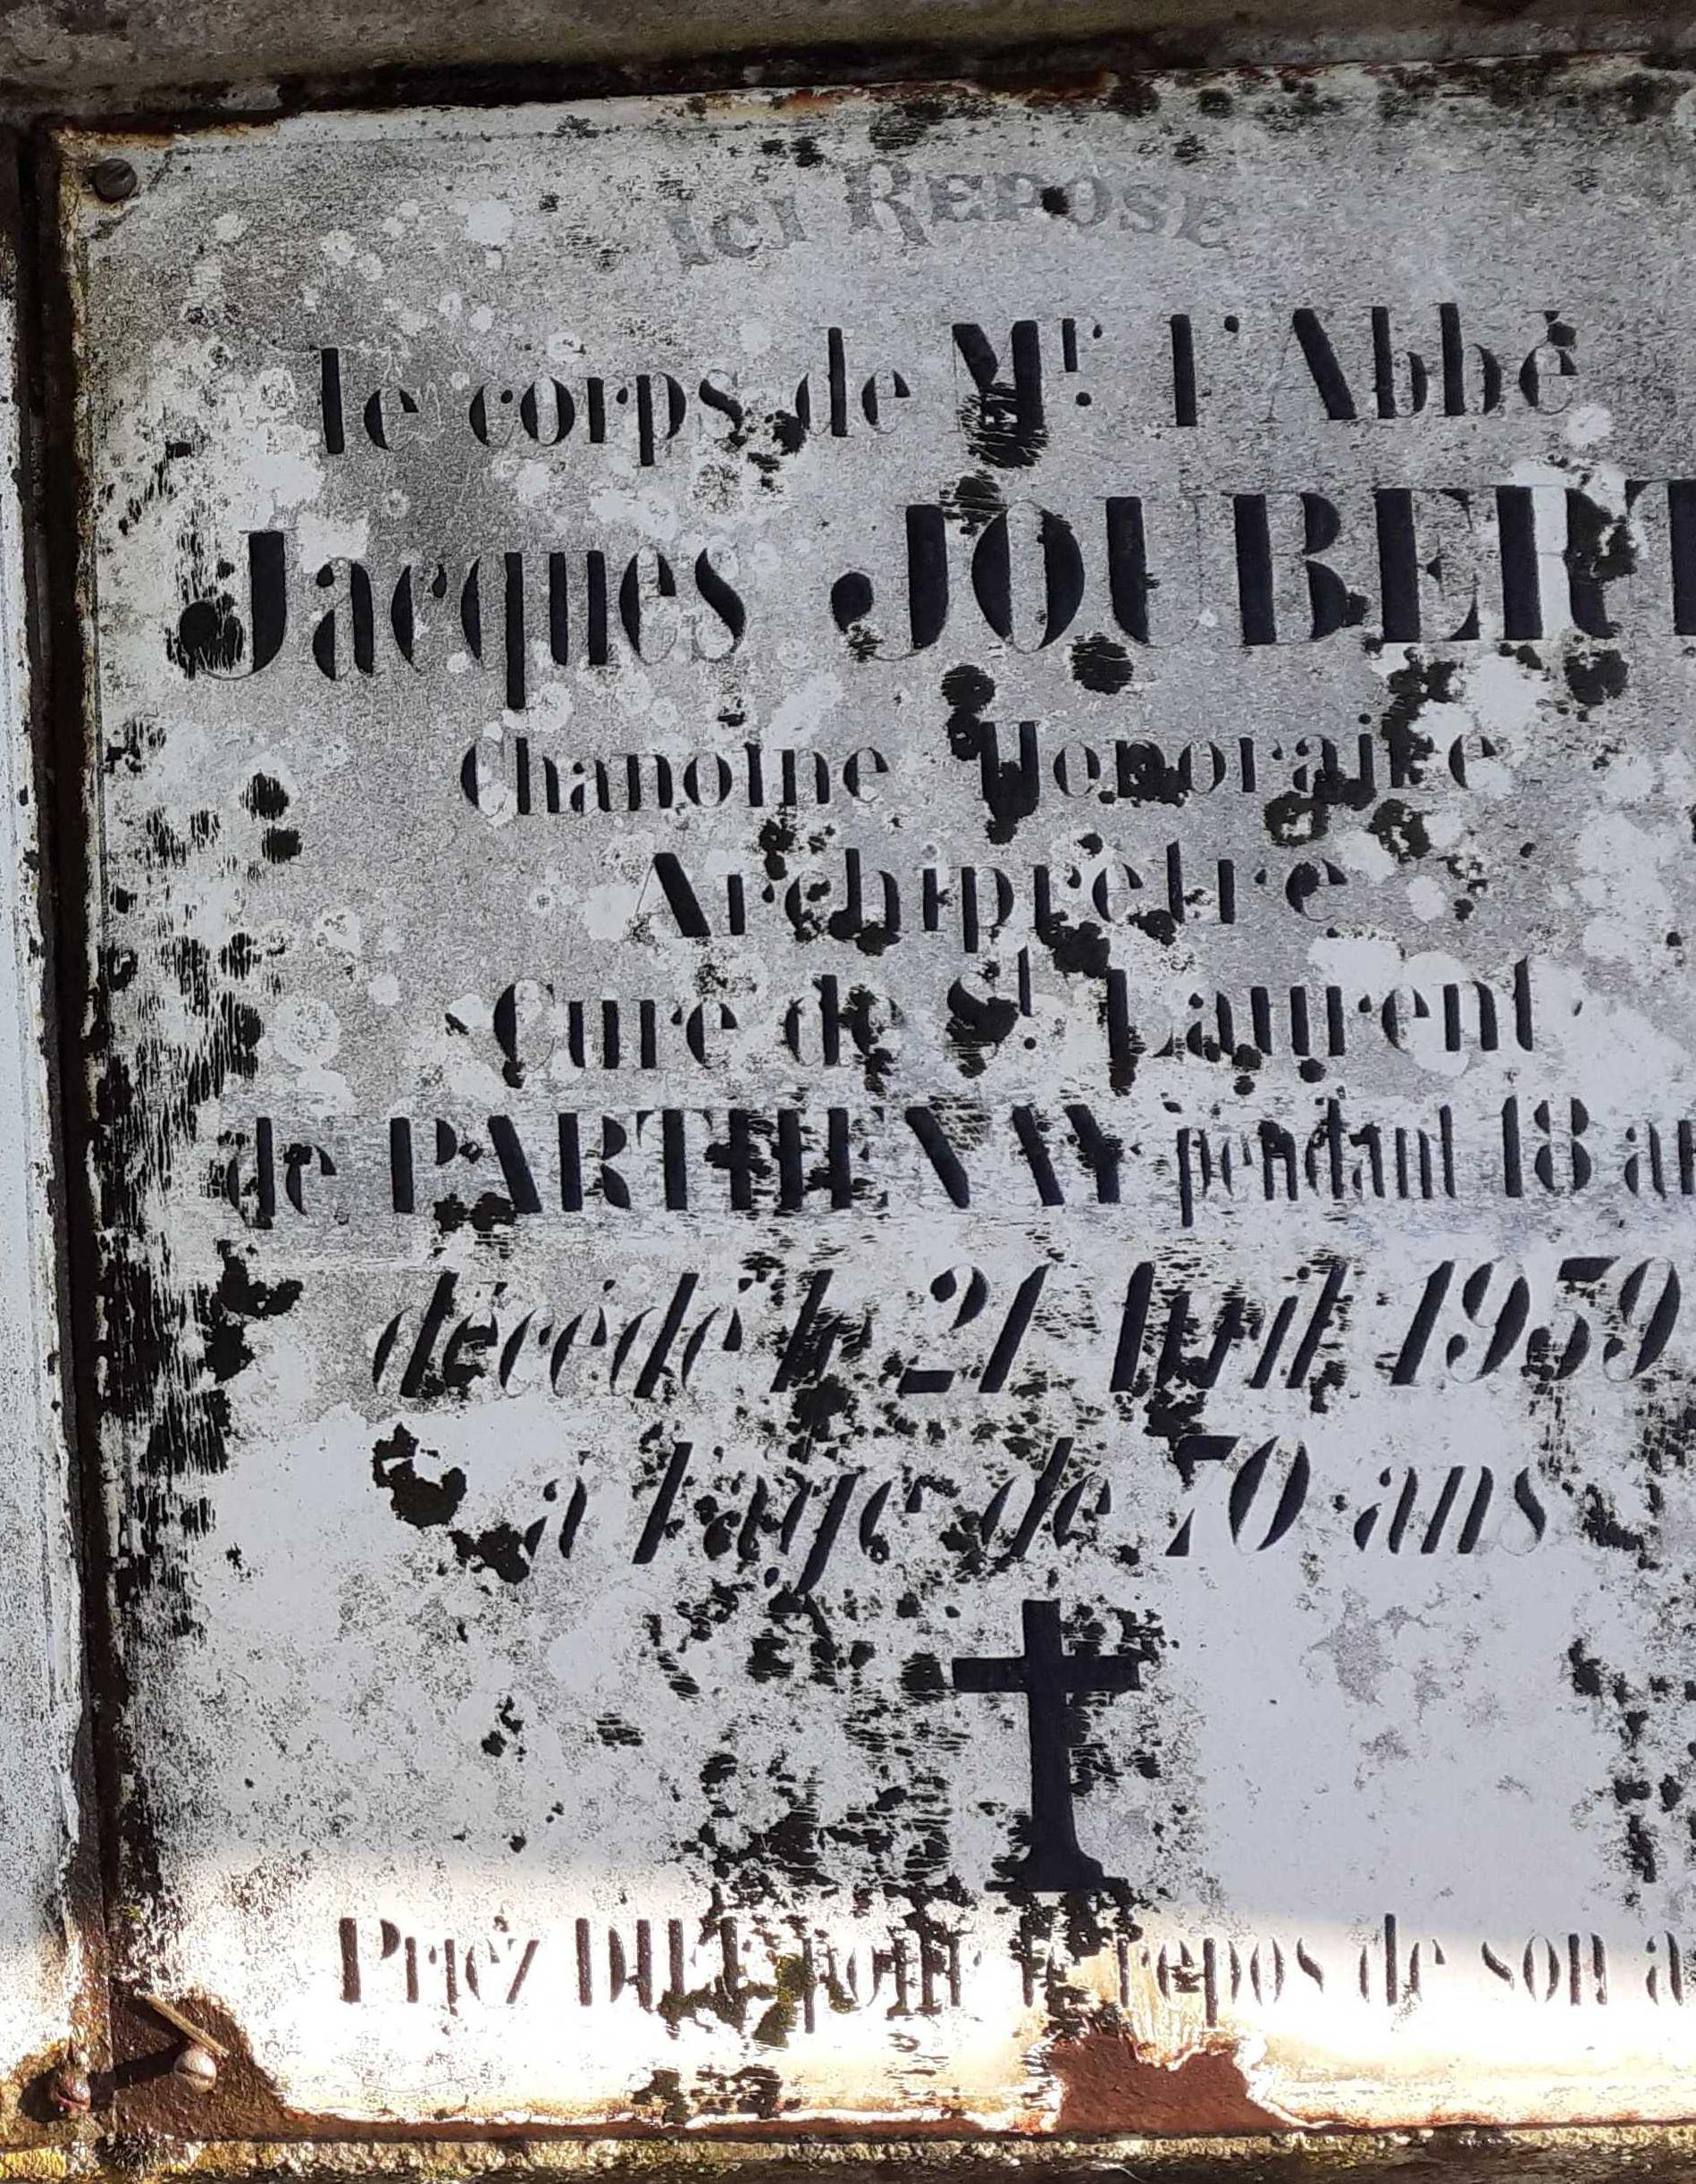 Ici Repose
le corps de Mr. l'Abbé
Jacques JOUBERT
Chanoine Honoraire
Archiprêtre
Curé de St Laurent
de PARTHENAY pendant 18 an
décédé le 21 Avril 1959
à l'âge de 70 ans
Priez DIEU pour le repos de son a